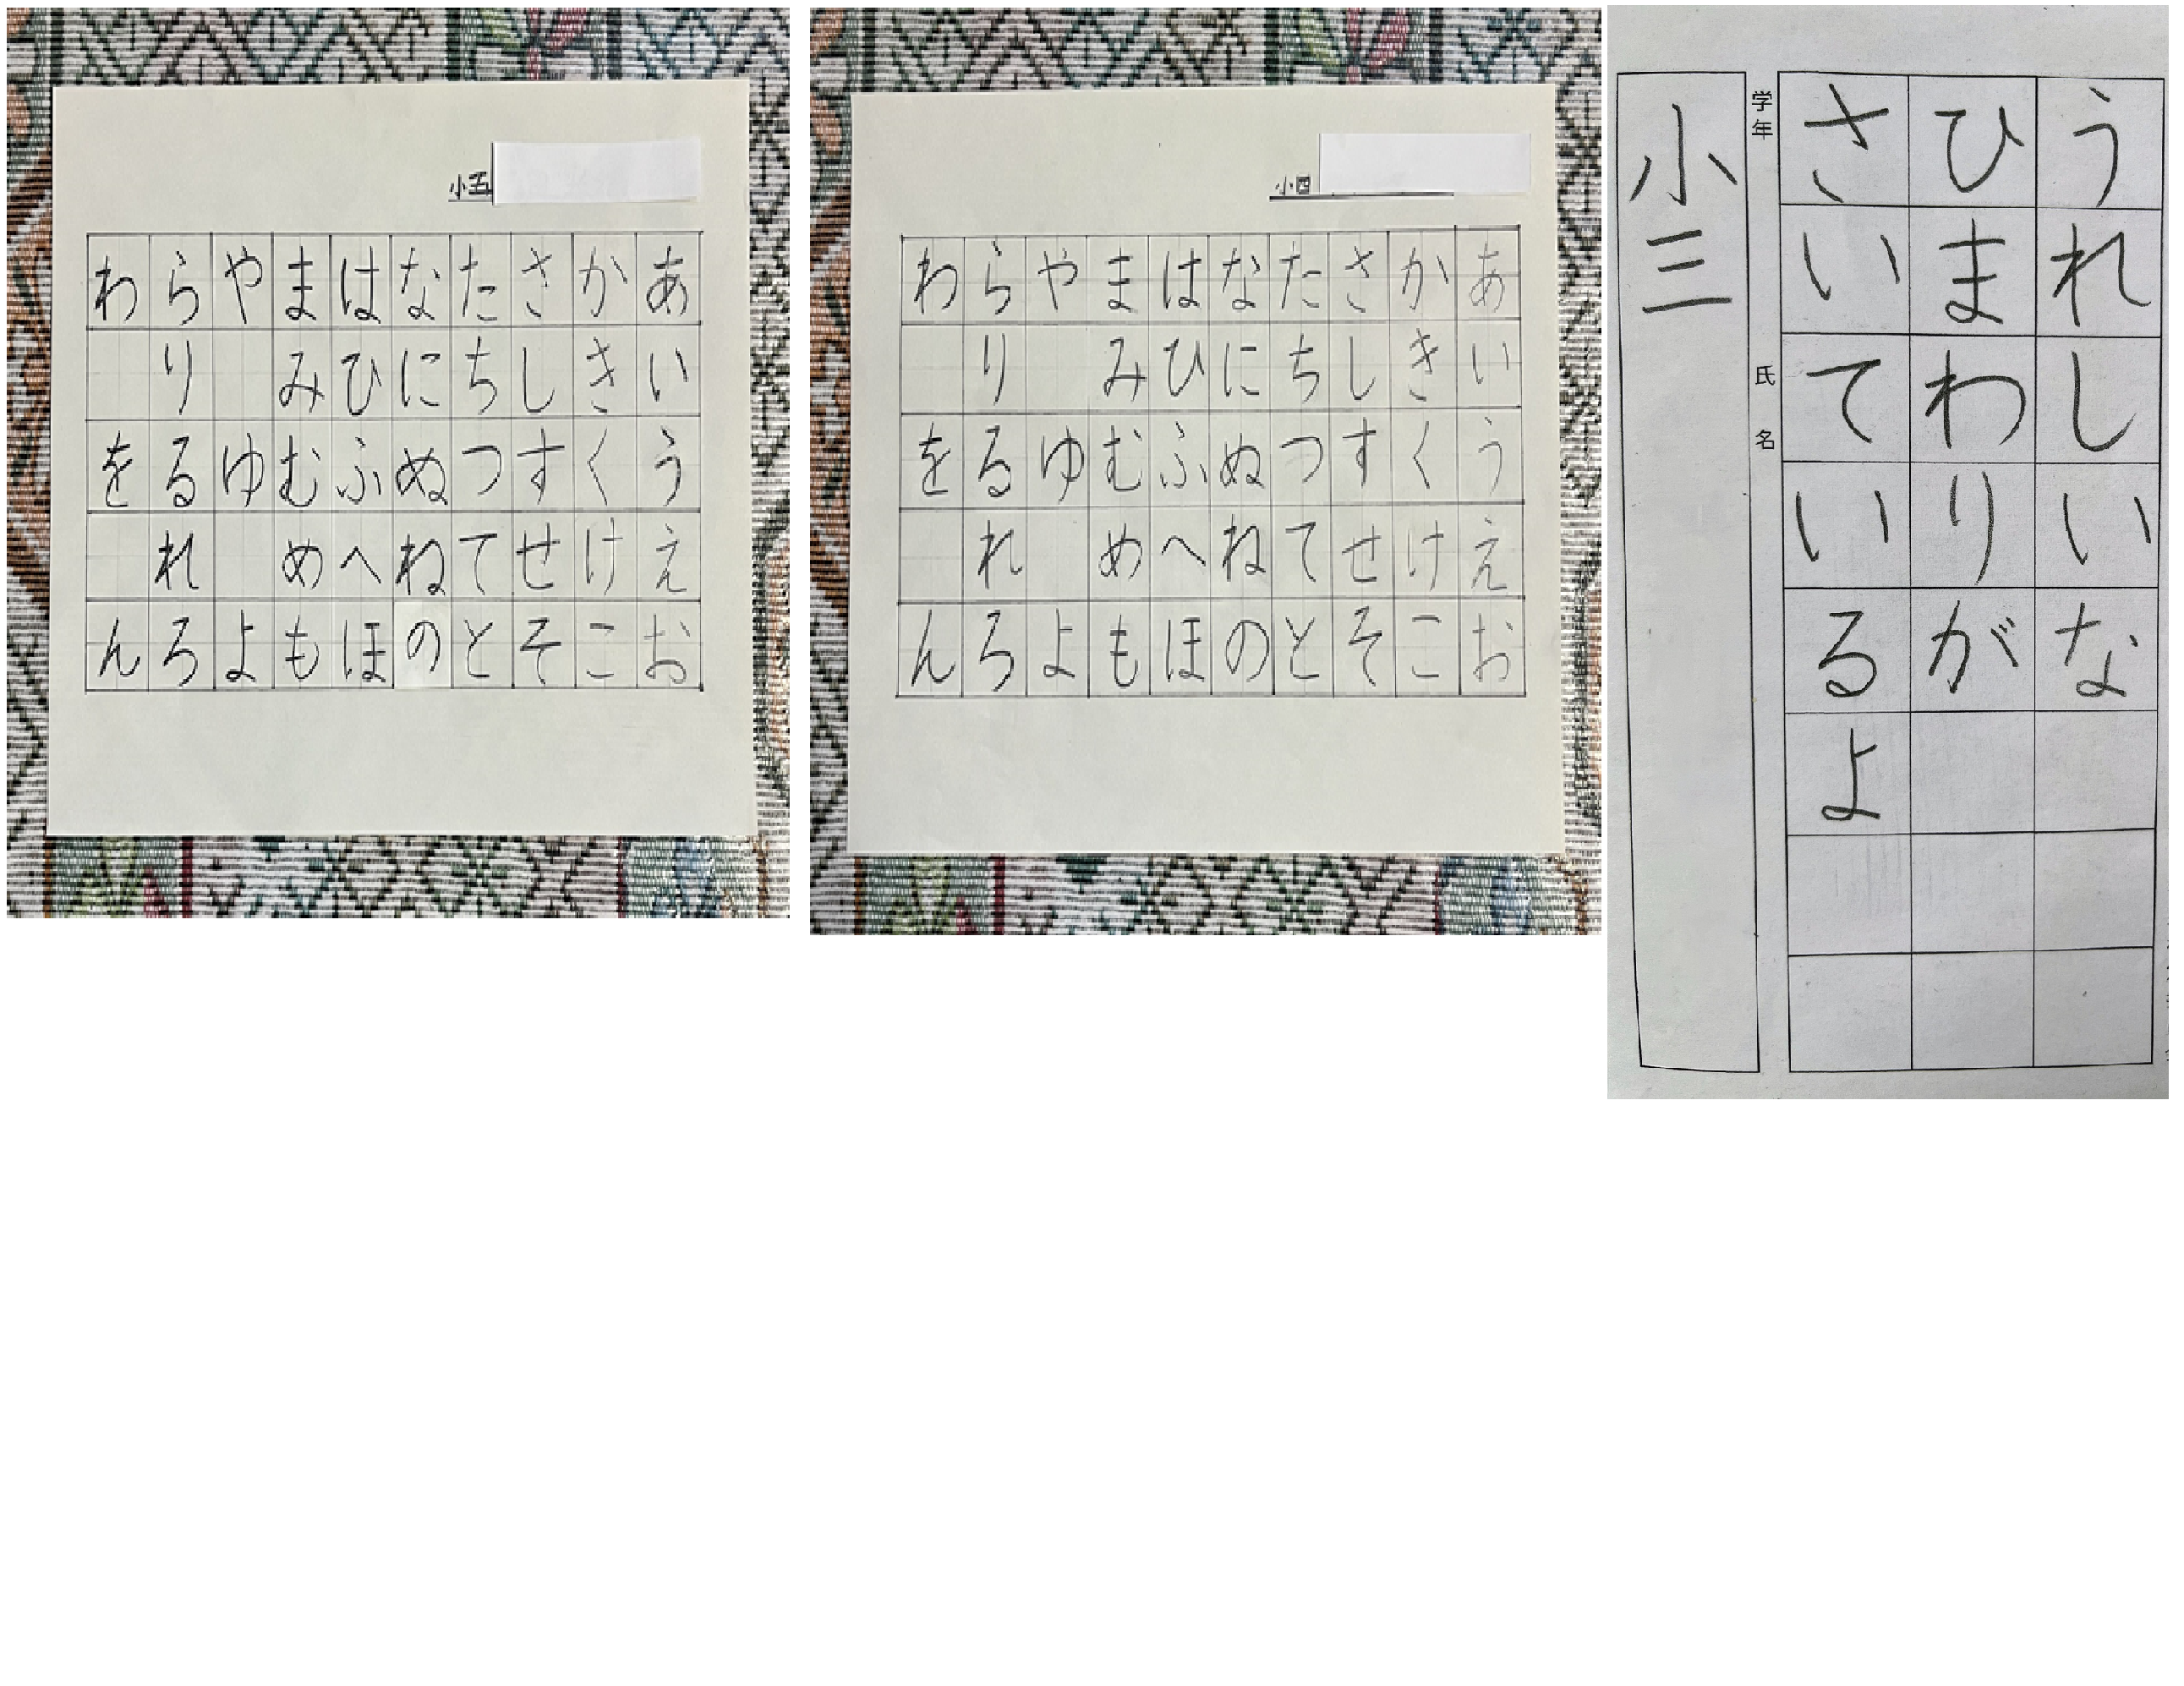 小五
あいうえお
かきくけこ
さしすせそ
たちつてと
なにぬねの
はひふへほ
まみむめも
やゆよ
らりるれろ
わをん
小四
あいうえお
かきくけこ
さしすせそ
たちつてと
なにぬねの
はひふへほ
まみむめも
やゆよ
らりるれろ
わをん
うれしいな
ひまわりが
さいているよ
学年
氏名
小三